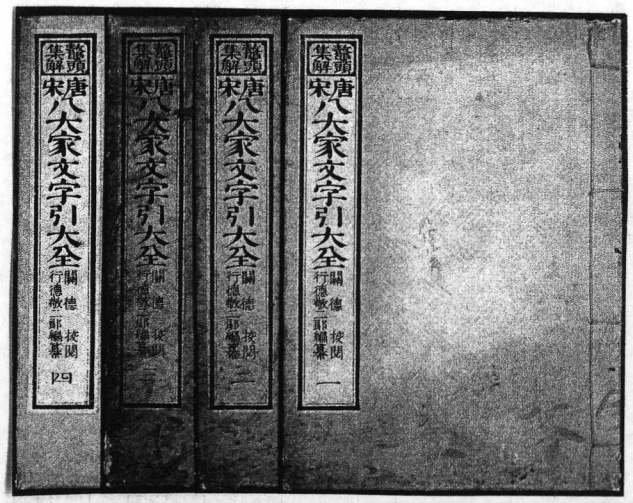 鼇頭
集解
唐宋八大家文字引大全
關德 挍閲
行德敬二郎編纂
一
鼇頭
集解
唐宋八大家文字引大全
關德 挍閲
行德敬二郎編纂
二
鼇頭
集解
唐宋八大家文字引大全
關德 挍閲
行德敬二郎編纂
三
鼇頭
集解
唐宋八大家文字引大全
關德 挍閲
行德敬二郎編纂
四